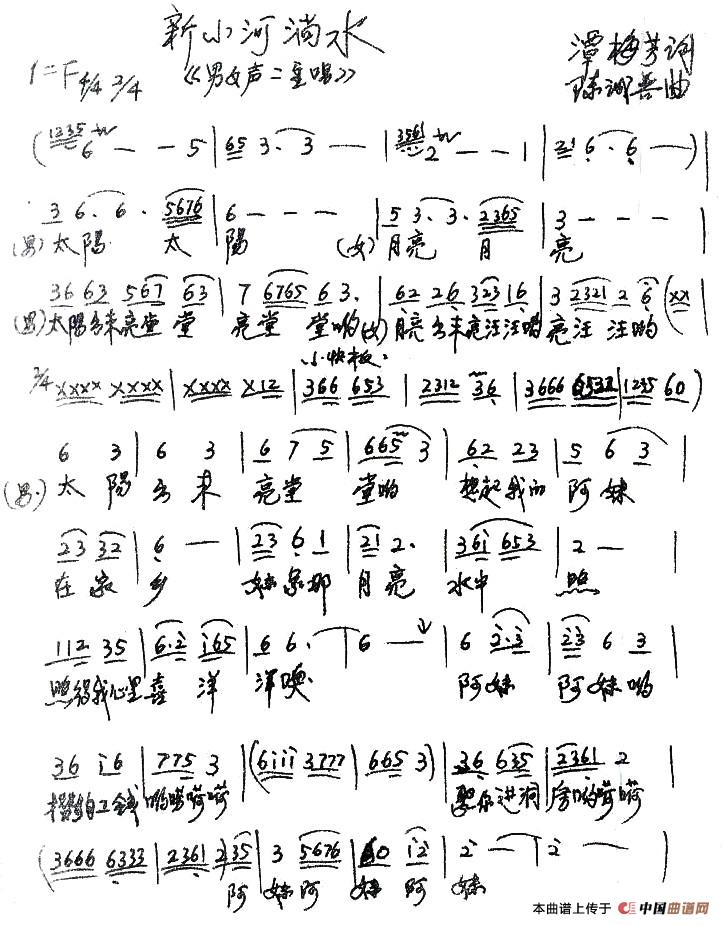 新小河淌水
《男女声二重唱》
1=F 4/4 3/4
潭梅芳词
陈 善曲
(1235 6 — — 5 | 65 3· 3 — | 3561 2 — — 1 | 21 6· 6 —) |
3 6· 6· 5676 | 6 — — — | 5 3· 3· 2365 | 3 — — — |
(男) 太陽 太 陽 (女) 月亮 月 亮
36 63 567 63 | 7 6765 6 3· | 62 26 323 16 | 3 2321 2 6 (xx |
(男) 太陽出来亮堂 堂 亮堂 堂哟 (女) 月亮出来亮汪汪哟 亮汪 汪哟
小快板
2/4 xxxx xxxx | xxxx x12 | 366 653 | 2312 36 | 3666 6532 | 1235 60)
6 3 | 6 3 | 6 7 5 | 665 3 | 62 23 | 5 6 3 |
(男) 太 陽 出 来 亮堂 堂哟 想起我的 阿 妹
23 32 | 6 — | 23 6 1 | 21 2· | 361 653 | 2 — |
在 家 乡 妹是那 月亮 水中 照
112 35 | 6·2 165 | 6 6· | 6 — | 6 2·3 | 23 6 3 |
照得我心里喜 洋 洋噢 阿妹 阿妹哟
36 16 | 775 3 | (6111 3777 | 665 3) | 36 635 | 2361 2
工钱 哟 嗬嗬 娶你进洞 房哟 嗬嗬
(3666 6333 | 2361 2) 35 | 3 5676 | 60 12 | 2 — | 2 — |
阿 妹阿 妹 阿 妹
本曲谱上传于 中国曲谱网